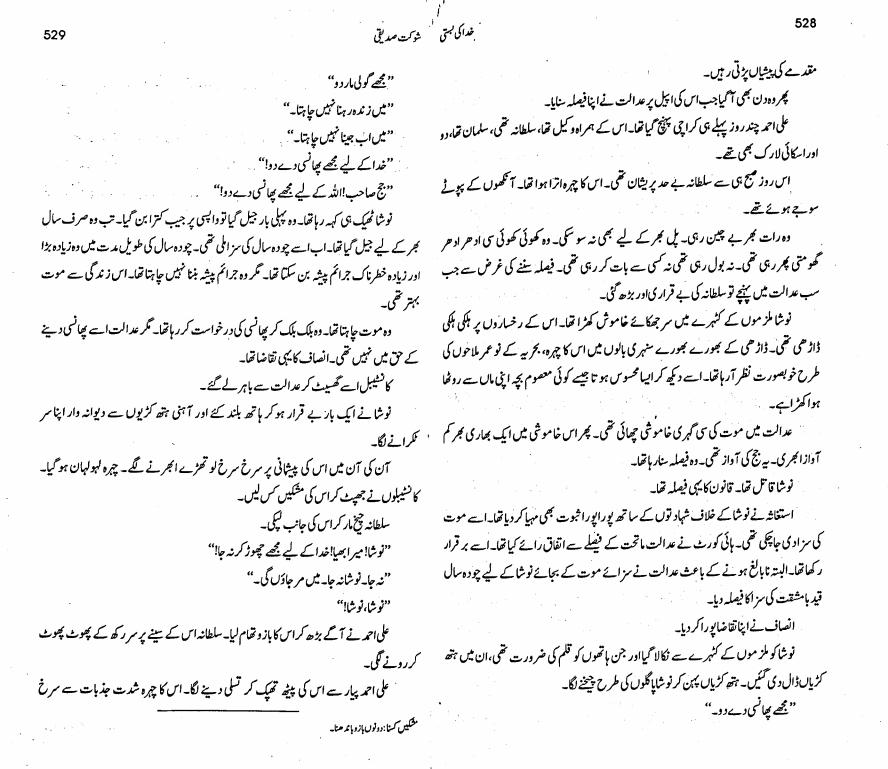 528
مقدمے کی پیشیاں پڑتی رہیں۔
پھر وہ دن بھی آ گیا جب اس کی اپیل پر عدالت نے اپنا فیصلہ سنایا۔
علی احمد چند روز پہلے ہی کراچی پہنچ گیا تھا۔ اس کے ہمراہ وکیل تھا، سلطانہ تھی، سلمان تھا، دو
اور اسکائی لارک بھی تھے۔
اس روز صبح ہی سے سلطانہ بے حد پریشان تھی۔ اس کا چہرہ اترا ہوا تھا۔ آنکھوں کے پپوٹے
سوجے ہوئے تھے۔
وہ رات بھر بے چین رہی۔ پل بھر کے لیے بھی نہ سو سکی۔ وہ کھوئی کھوئی سی ادھر ادھر
گھومتی پھر رہی تھی۔ نہ بول رہی تھی نہ کسی سے بات کر رہی تھی۔ فیصلہ سننے کی غرض سے جب
سب عدالت میں پہنچے تو سلطانہ کی بے قراری اور بڑھ گئی۔
نوشا ملزموں کے کٹہرے میں سر جھکائے خاموش کھڑا تھا۔ اس کے رخساروں پر ہلکی ہلکی
ڈاڑھی تھی۔ ڈاڑھی کے بھورے بھورے سنہری بالوں میں اس کا چہرہ، بحریہ کے نو عمر ملاحوں کی
طرح خوبصورت نظر آ رہا تھا۔ اسے دیکھ کر ایسا محسوس ہوتا جیسے کوئی معصوم بچہ اپنی ماں سے روٹھا
ہوا کھڑا ہے۔
عدالت میں موت کی سی گہری خاموشی چھائی تھی۔ پھر اس خاموشی میں ایک بھاری بھرکم
آواز ابھری۔ یہ جج کی آواز تھی۔ وہ فیصلہ سنا رہا تھا۔
نوشا قاتل تھا۔ قانون کا یہی فیصلہ تھا۔
استغاثہ نے نوشا کے خلاف شہادتوں کے ساتھ پورا پورا ثبوت بھی مہیا کر دیا تھا۔ اسے موت
کی سزا دی جا چکی تھی۔ ہائی کورٹ نے عدالت ماتحت کے فیصلے سے اتفاق رائے کیا تھا۔ اسے برقرار
رکھا تھا۔ البتہ نابالغ ہونے کے باعث عدالت نے سزائے موت کے بجائے نوشا کے لیے چودہ سال
قید بامشقت کی سزا کا فیصلہ دیا۔
انصاف نے اپنا تقاضا پورا کر دیا۔
نوشا کو ملزموں کے کٹہرے سے نکالا گیا اور جن ہاتھوں کو قلم کی ضرورت تھی، ان میں ہتھ
کڑیاں ڈال دی گئیں۔ ہتھ کڑیاں پہن کر نوشا پاگلوں کی طرح چیخنے لگا۔
”مجھے پھانسی دے دو۔“
خدا کی بستی شوکت صدیقی
529
”مجھے گولی مار دو“
”میں زندہ رہنا نہیں چاہتا۔“
”میں اب جینا نہیں چاہتا۔“
”خدا کے لیے مجھے پھانسی دے دو!“
”جج صاحب! اللہ کے لیے مجھے پھانسی دے دو!“
نوشا ٹھیک ہی کہہ رہا تھا۔ وہ پہلی بار جیل گیا تو واپسی پر جیب کترا بن گیا۔ تب وہ صرف سال
بھر کے لیے جیل گیا تھا۔ اب اسے چودہ سال کی سزا ملی تھی۔ چودہ سال کی طویل مدت میں وہ زیادہ بڑا
اور زیادہ خطرناک جرائم پیشہ بن سکتا تھا۔ مگر وہ جرائم پیشہ بننا نہیں چاہتا تھا۔ اس زندگی سے موت
بہتر تھی۔
وہ موت چاہتا تھا۔ وہ بلک بلک کر پھانسی کی درخواست کر رہا تھا۔ مگر عدالت اسے پھانسی دینے
کے حق میں نہیں تھی۔ انصاف کا یہی تقاضا تھا۔
کانسٹیبل اسے گھسیٹ کر عدالت سے باہر لے گئے۔
نوشا نے ایک بار بے قرار ہو کر ہاتھ بلند کئے اور آہنی ہتھ کڑیوں سے دیوانہ وار اپنا سر
ٹکرانے لگا۔
آن کی آن میں اس کی پیشانی پر سرخ سرخ لوتھڑے ابھرنے لگے۔ چہرہ لہولہان ہو گیا۔
کانسٹیبلوں نے جھپٹ کر اس کی مشکیں کس لیں۔
سلطانہ چیخ مار کر اس کی جانب لپکی۔
”نوشا! میرا بھیا! خدا کے لیے مجھے چھوڑ کر نہ جا!“
”نہ جا۔ نوشا نہ جا۔ میں مر جاؤں گی۔“
”نوشا، نوشا!“
علی احمد نے آگے بڑھ کر اس کا بازو تھام لیا۔ سلطانہ اس کے سینے پر سر رکھ کے پھوٹ پھوٹ
کر رونے لگی۔
علی احمد پیار سے اس کی پیٹھ تھپک کر تسلی دینے لگا۔ اس کا چہرہ شدت جذبات سے سرخ
مشکیں کسنا: دونوں بازو باندھنا۔